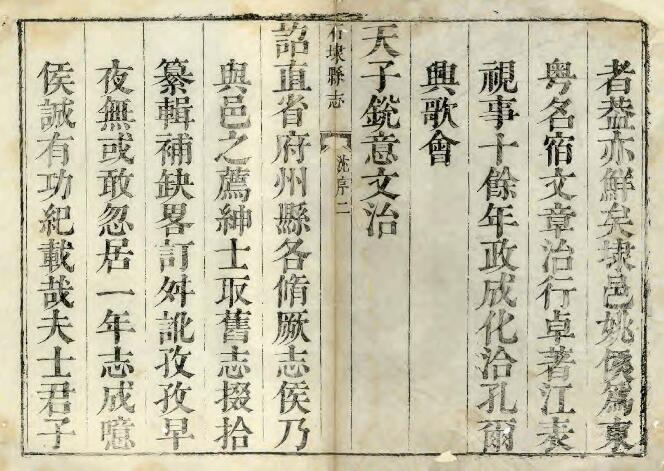 者葢亦鮮矣埭邑姚侯篤東
粤名宿文章治行卓著江表
視事十餘年政成化洽孔爾
興歌會
天子銳意文治
石埭縣志
沈序二
詔直省府州縣各脩厥志侯乃
與邑之薦紳士取舊志掇拾
纂輯補缺畧訂舛訛孜孜早
夜無或敢忽居一年志成噫
侯誠有功紀載哉夫士君子